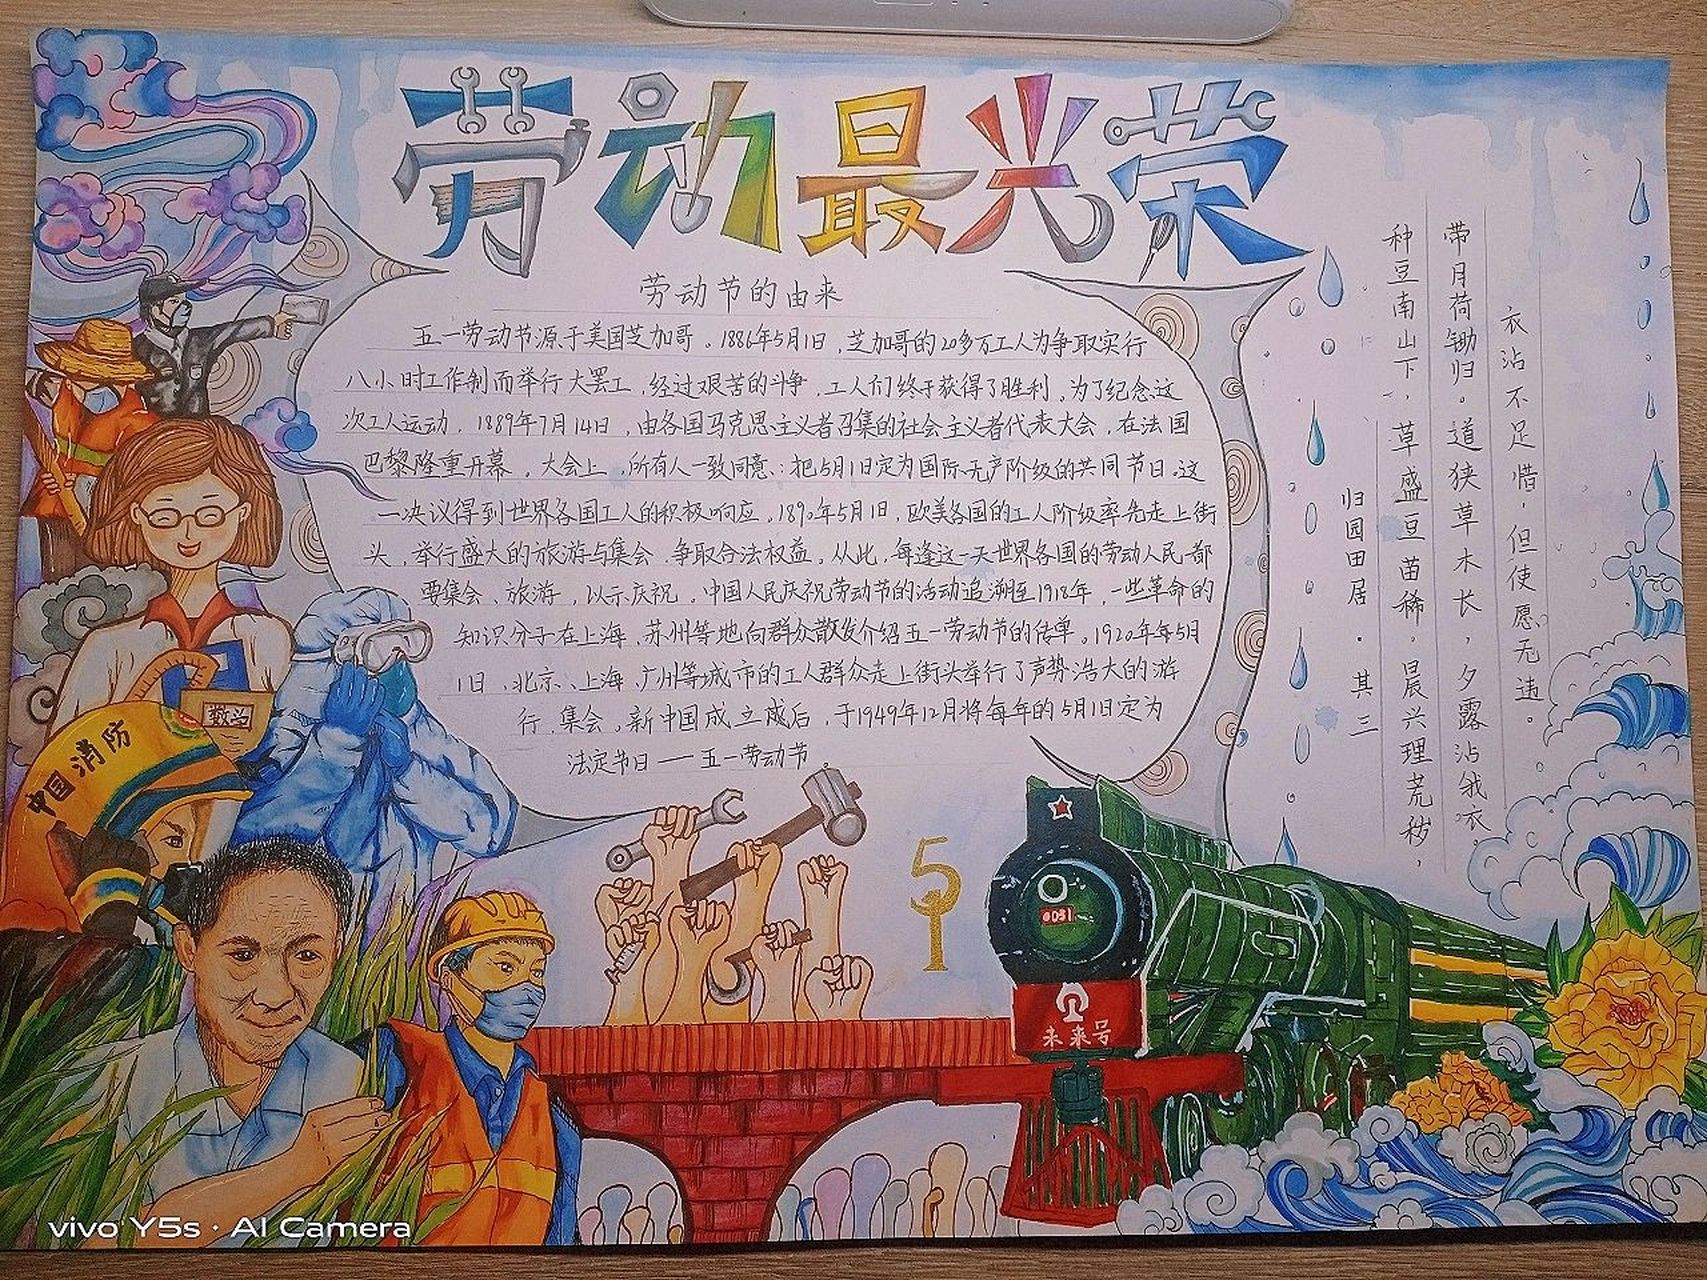 劳动最光荣
劳动节的由来
五一劳动节源于美国芝加哥。1886年5月1日,芝加哥的20多万工人为争取实行
八小时工作制而举行大罢工,经过艰苦的斗争,工人们终于获得了胜利。为了纪念这
次工人运动,1889年7月14日,由各国马克思主义者召集的社会主义者代表大会,在法国
巴黎隆重开幕,大会上,所有人一致同意:把5月1日定为国际无产阶级的共同节日。这
一决议得到世界各国工人的积极响应。1890年5月1日,欧美各国的工人阶级率先走上街
头,举行盛大的旅游与集会,争取合法权益。从此,每逢这一天世界各国的劳动人民都
要集会、旅游,以示庆祝。中国人民庆祝劳动节的活动追溯至1918年,一些革命的
知识分子在上海、苏州等地向群众散发介绍五一劳动节的传单。1920年每5月
1日,北京、上海、广州等城市的工人群众走上街头举行了声势浩大的游
行、集会。新中国成立成后,于1949年12月将每年的5月1日定为
法定节日——五一劳动节。
归园田居·其三
种豆南山下,草盛豆苗稀。晨兴理荒秽,
带月荷锄归。道狭草木长,夕露沾我衣。
衣沾不足惜,但使愿无违。
数学
中国消防
51
0031
未来号
vivo Y5s · AI Camera